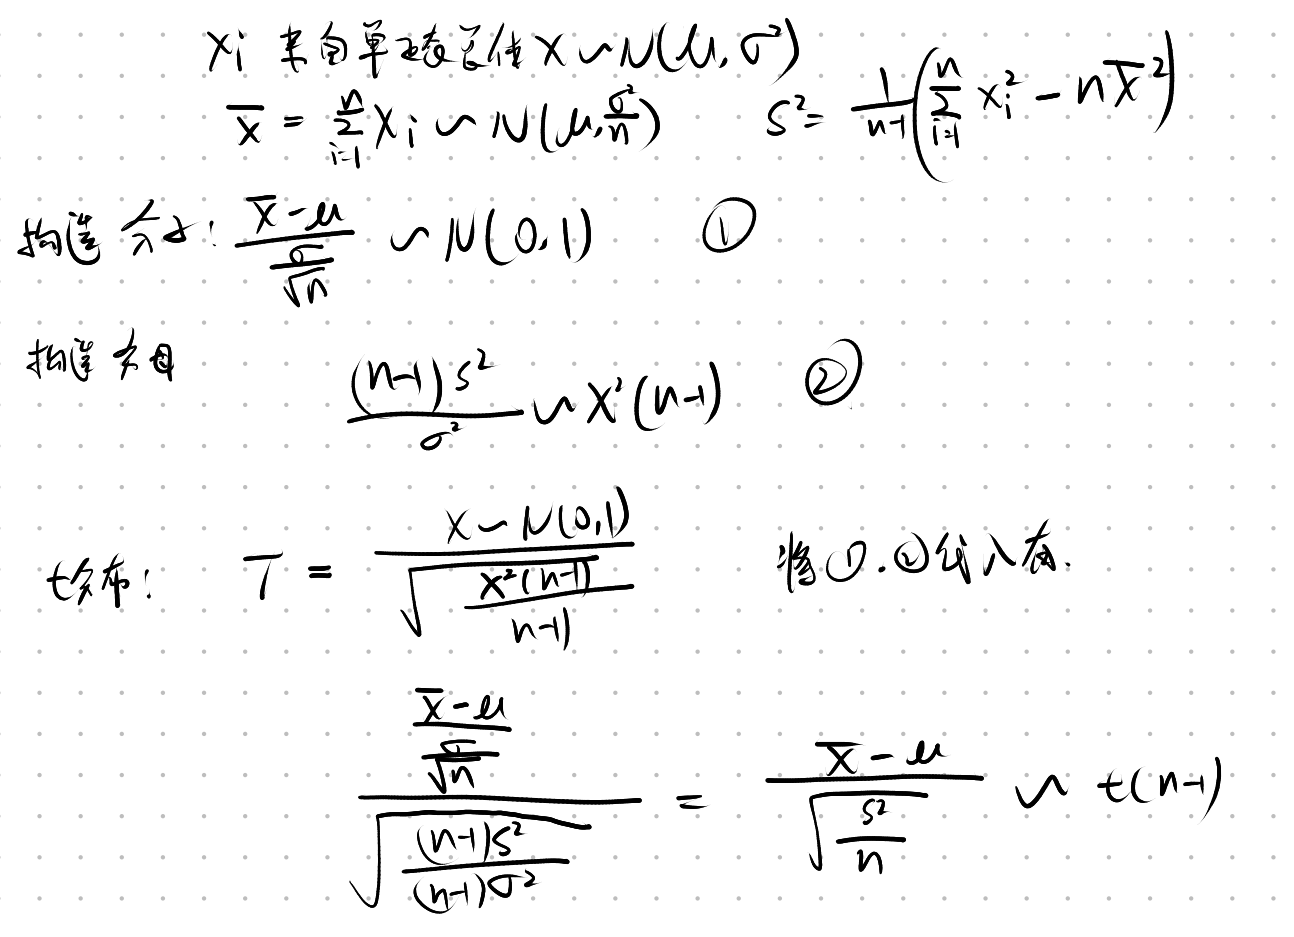 Xi 来自单正态总体 X ~ N(μ, σ²)
X̄ = Σ_{i=1}^{n} Xi ~ N(μ, σ²/n)    S² = 1/(n-1) (Σ_{i=1}^{n} Xi² - nX̄²)
构造分子: (X̄-μ)/(σ/√n) ~ N(0,1)    ①
构造分母
(n-1)S²/σ² ~ X²(n-1)    ②
t分布: T = (X ~ N(0,1))/√(X²(n-1)/(n-1))    将①.②代入有.
((X̄-μ)/(σ/√n))/√((n-1)S²/((n-1)σ²)) = (X̄-μ)/√(S²/n) ~ t(n-1)